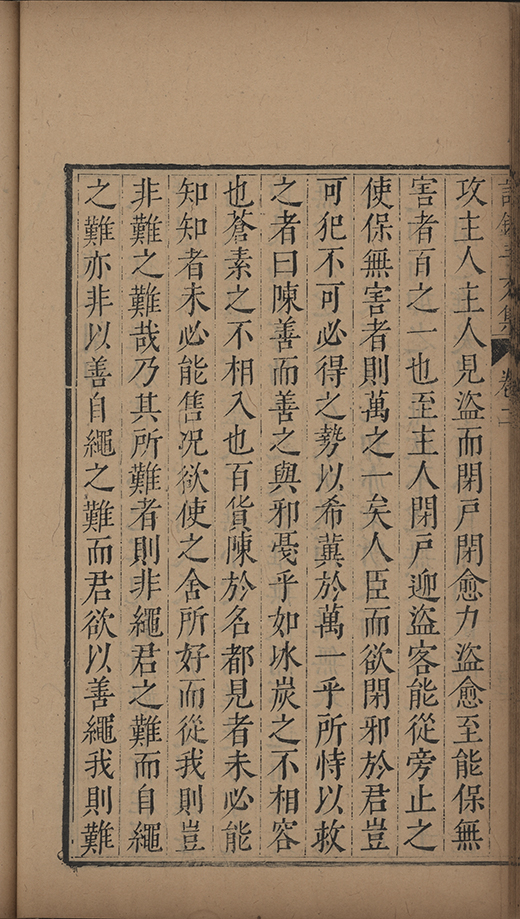 卷二
攻主人主人見盜而閉戶閉愈力盜愈至能保無
害者百之一也至主人閉戶迎盜客能從旁止之
使保無害者則萬之一矣人臣而欲閉邪於君豈
可犯不可必得之勢以希冀於萬一乎所恃以救
之者曰陳善而善之與邪戞乎如冰炭之不相容
也蒼素之不相入也百貨陳於名都見者未必能
知知者未必能售况欲使之舍所好而從我則豈
非難之難哉乃其所難者則非繩君之難而自繩
之難亦非以善自繩之難而君欲以善繩我則難